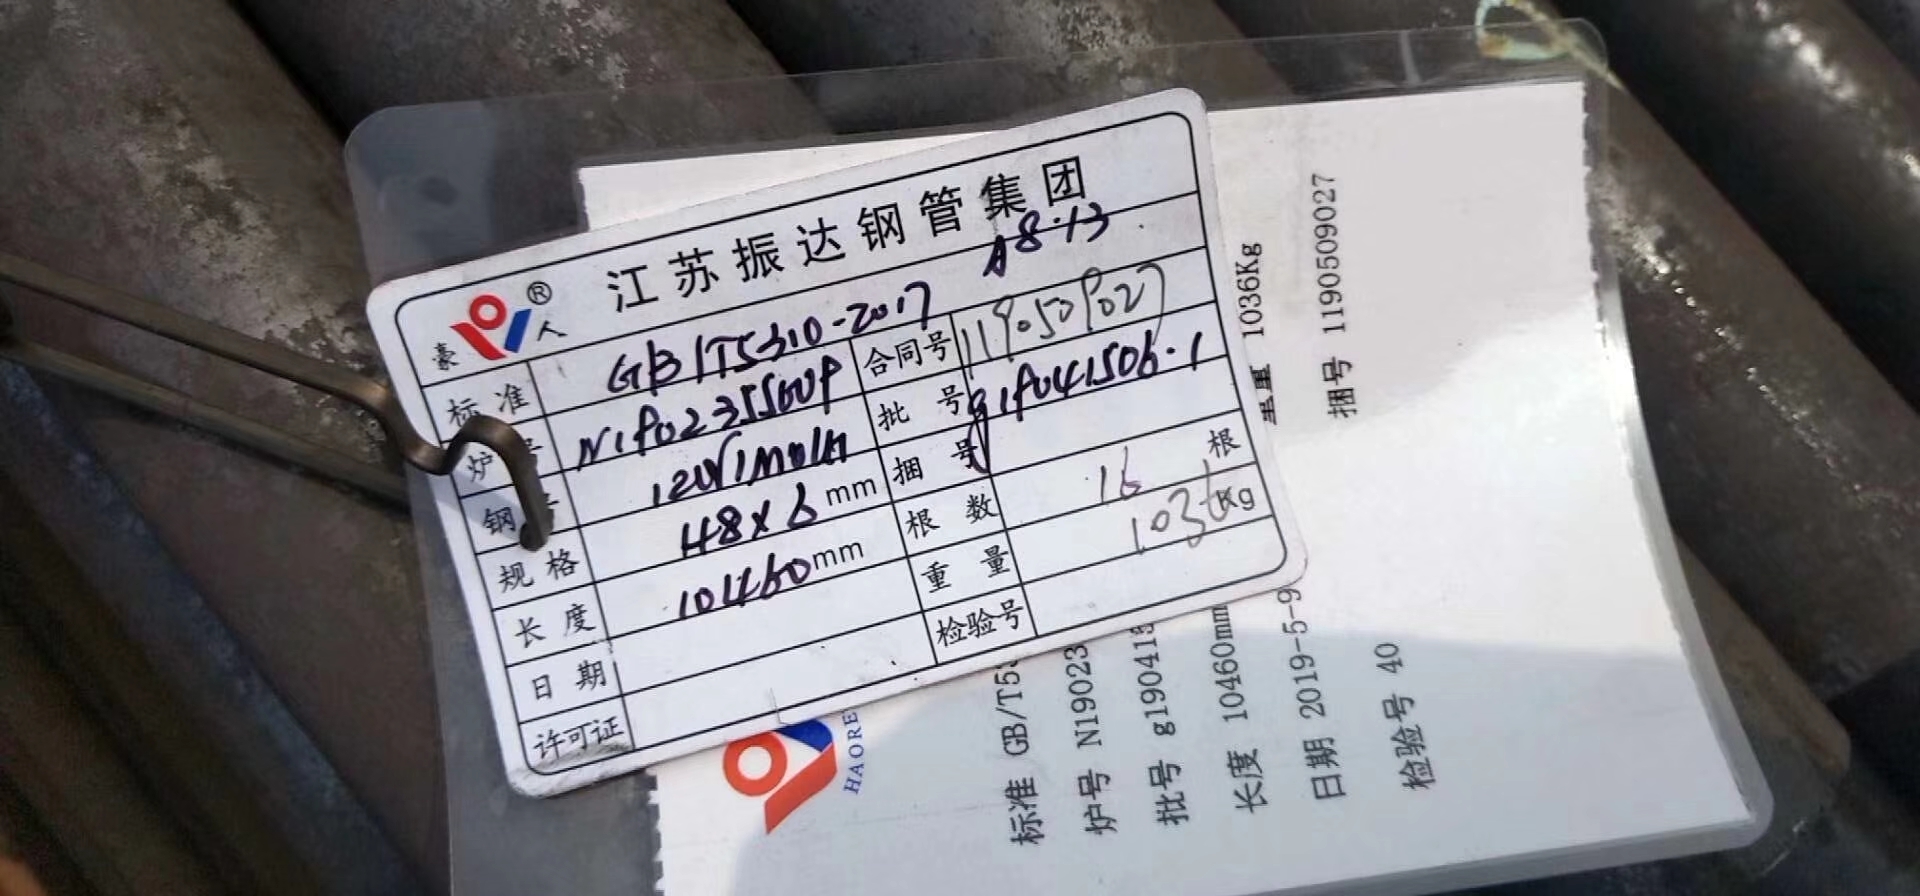 江苏振达钢管集团
豪 ® 人
A8.13
标准 GB/T5310-2017
合同号 1190509027
炉号
批号 g19041506.1
钢号 12Cr1MoVG
捆号
规格 48×6 mm
根数 16 根
长度 10460mm
重量 1036Kg
日期
检验号
许可证
HAORE
标准 GB/T53
炉号 N19023
批号 g190415
长度 10460mm
重量 1036Kg
日期 2019-5-9
捆号 1190509027
检验号 40